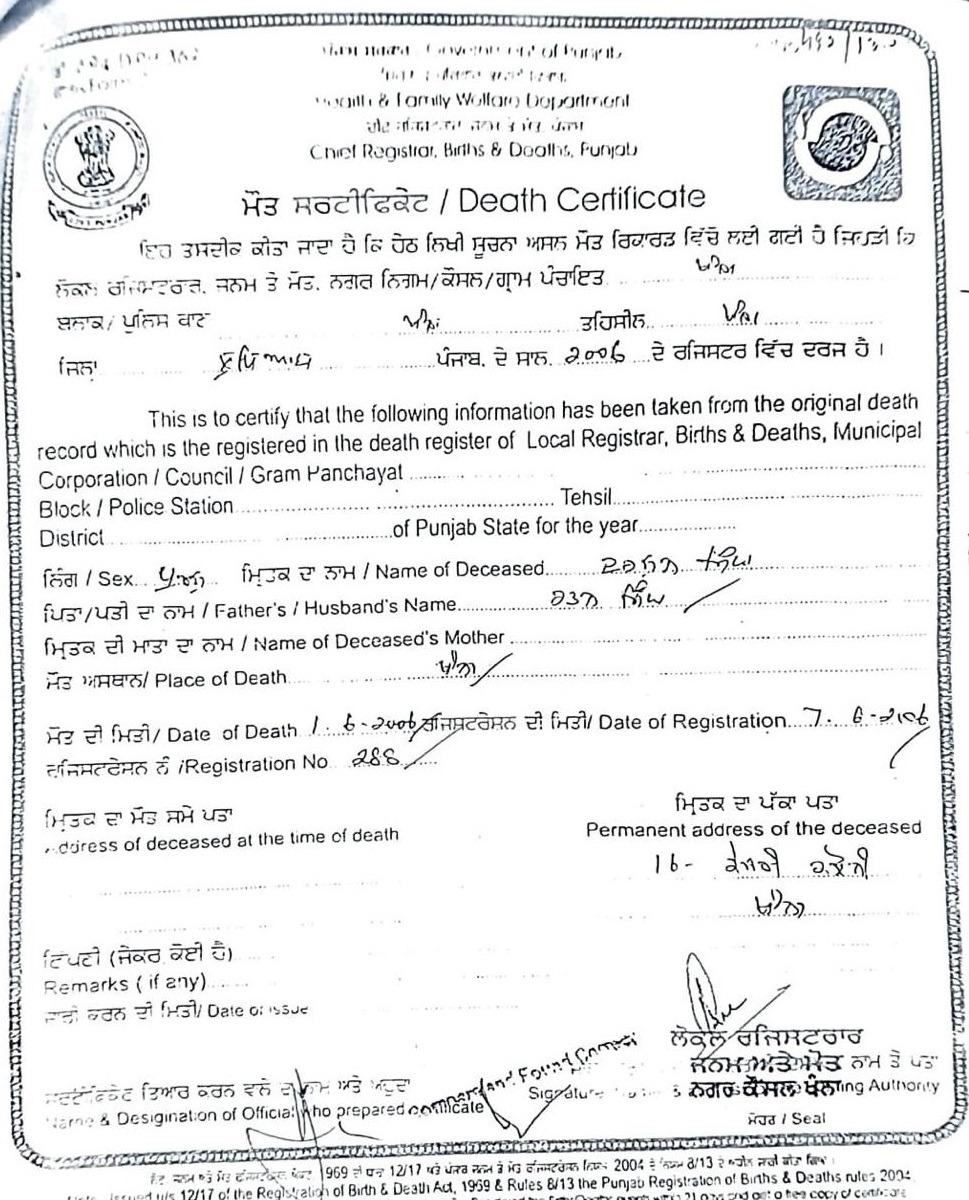 Government of Punjab
Health & Family Welfare Department
Chief Registrar, Births & Deaths, Punjab
ਮੌਤ ਸਰਟੀਫਿਕੇਟ / Death Certificate
ਇਹ ਤਸਦੀਕ ਕੀਤਾ ਜਾਂਦਾ ਹੈ ਕਿ ਹੇਠ ਲਿਖੀ ਸੂਚਨਾ ਅਸਲ ਮੌਤ ਰਿਕਾਰਡ ਵਿੱਚੋਂ ਲਈ ਗਈ ਹੈ ਜਿਹੜੀ ਕਿ
ਲੋਕਲ ਰਜਿਸਟਰਾਰ, ਜਨਮ ਤੇ ਮੌਤ, ਨਗਰ ਨਿਗਮ/ਕੌਂਸਲ/ਗ੍ਰਾਮ ਪੰਚਾਇਤ ਖੰਨਾ
ਬਲਾਕ/ ਪੁਲਿਸ ਥਾਣਾ ਖੰਨਾ ਤਹਿਸੀਲ ਖੰਨਾ
ਜਿਲਾ ਲੁਧਿਆਣਾ ਪੰਜਾਬ ਦੇ ਸਾਲ 2006 ਦੇ ਰਜਿਸਟਰ ਵਿੱਚ ਦਰਜ ਹੈ ।
This is to certify that the following information has been taken from the original death
record which is the registered in the death register of Local Registrar, Births & Deaths, Municipal
Corporation / Council / Gram Panchayat
Block / Police Station Tehsil
District of Punjab State for the year
ਲਿੰਗ / Sex ਪੁਰਸ਼ ਮ੍ਰਿਤਕ ਦਾ ਨਾਮ / Name of Deceased ਦਰਸ਼ਨ ਸਿੰਘ
ਪਿਤਾ/ਪਤੀ ਦਾ ਨਾਮ / Father's / Husband's Name ਰਤਨ ਸਿੰਘ
ਮ੍ਰਿਤਕ ਦੀ ਮਾਤਾ ਦਾ ਨਾਮ / Name of Deceased's Mother
ਮੌਤ ਅਸਥਾਨ/ Place of Death ਖੰਨਾ
ਮੌਤ ਦੀ ਮਿਤੀ/ Date of Death 1-6-2006 ਰਜਿਸਟਰੇਸ਼ਨ ਦੀ ਮਿਤੀ/ Date of Registration 7-6-2006
ਰਜਿਸਟਰੇਸ਼ਨ ਨੰ /Registration No 288
ਮ੍ਰਿਤਕ ਦਾ ਮੌਤ ਸਮੇ ਪਤਾ
Address of deceased at the time of death
ਮ੍ਰਿਤਕ ਦਾ ਪੱਕਾ ਪਤਾ
Permanent address of the deceased
16- ਕਲੋਨੀ
ਖੰਨਾ
ਟਿੱਪਣੀ (ਜੇਕਰ ਕੋਈ ਹੈ)
Remarks ( if any)
ਜਾਰੀ ਕਰਨ ਦੀ ਮਿਤੀ/ Date of issue
ਲੋਕਲ ਰਜਿਸਟਰਾਰ
ਜਨਮ ਅਤੇ ਮੌਤ ਨਾਮ ਤੇ ਪਤਾ
ਨਗਰ ਕੌਂਸਲ ਖੰਨਾ
Signature Authority
ਮੋਹਰ / Seal
ਸਰਟੀਫਿਕੇਟ ਤਿਆਰ ਕਰਨ ਵਾਲੇ ਦਾ ਨਾਮ ਅਤੇ ਅਹੁਦਾ
Name & Designation of Official who prepared certificate
Compared and Found Correct
1969 ਦੀ ਧਾਰਾ 12/17 ਅਤੇ ਪੰਜਾਬ ਜਨਮ ਤੇ ਮੌਤ ਰਜਿਸਟਰੇਸ਼ਨ ਨਿਯਮ 2004 ਦੇ ਨਿਯਮ 8/13 ਦੇ ਅਧੀਨ ਜਾਰੀ ਕੀਤਾ ਗਿਆ ।
issued u/s 12/17 of the Registration of Birth & Death Act, 1969 & Rules 8/13 the Punjab Registration of Births & Deaths rules 2004